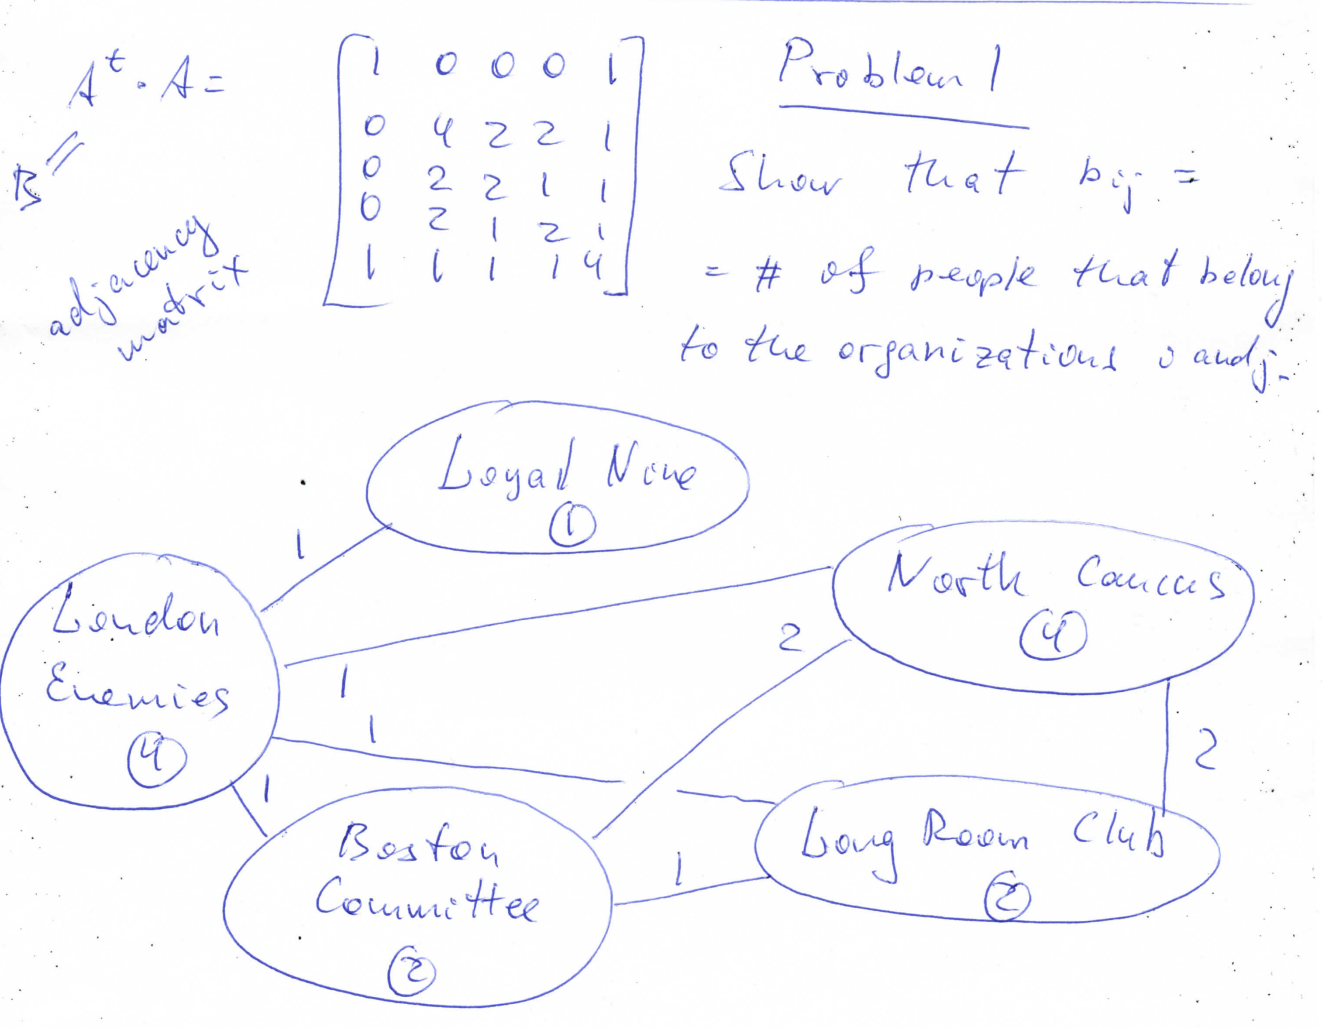 Aᵗ · A =
B =
adjacency
matrix
1 0 0 0 1
0 4 2 2 1
0 2 2 1 1
0 2 1 2 1
1 1 1 1 4
Problem 1
Show that bij =
= # of people that belong
to the organizations i and j.
Loyal Nine
1
1
North Caucus
4
London
Enemies
4
1
2
1
1
2
Boston
Committee
2
1
Long Room Club
2